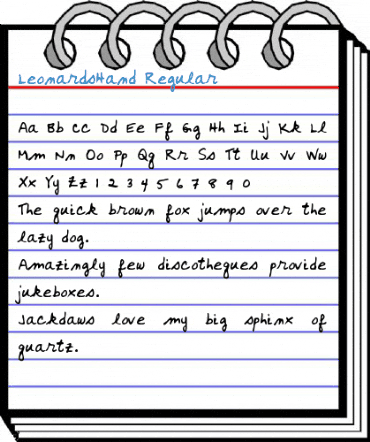 LeonardsHand Regular
Aa Bb Cc Dd Ee Ff Gg Hh Ii Jj Kk Ll
Mm Nn Oo Pp Qq Rr Ss Tt Uu Vv Ww
Xx Yy Zz 1 2 3 4 5 6 7 8 9 0
The quick brown fox jumps over the
lazy dog.
Amazingly few discotheques provide
jukeboxes.
Jackdaws love my big sphinx of
quartz.